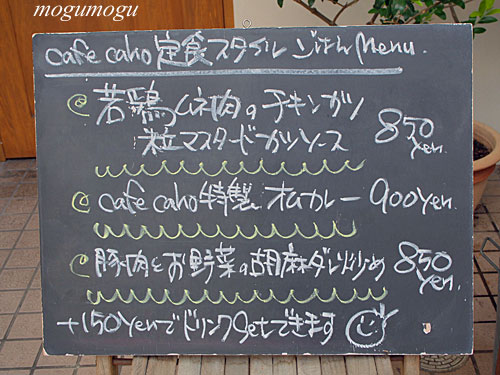 mogumogu
cafe caho 定食スタイル ごはんMenu.
若鶏ムネ肉のチキンカツ
粒マスタードカツソース 850yen.
cafe caho特製 オムカレー 900yen.
豚肉とお野菜の胡麻ダレ炒め 850yen.
+150yenでドリンクgetできます